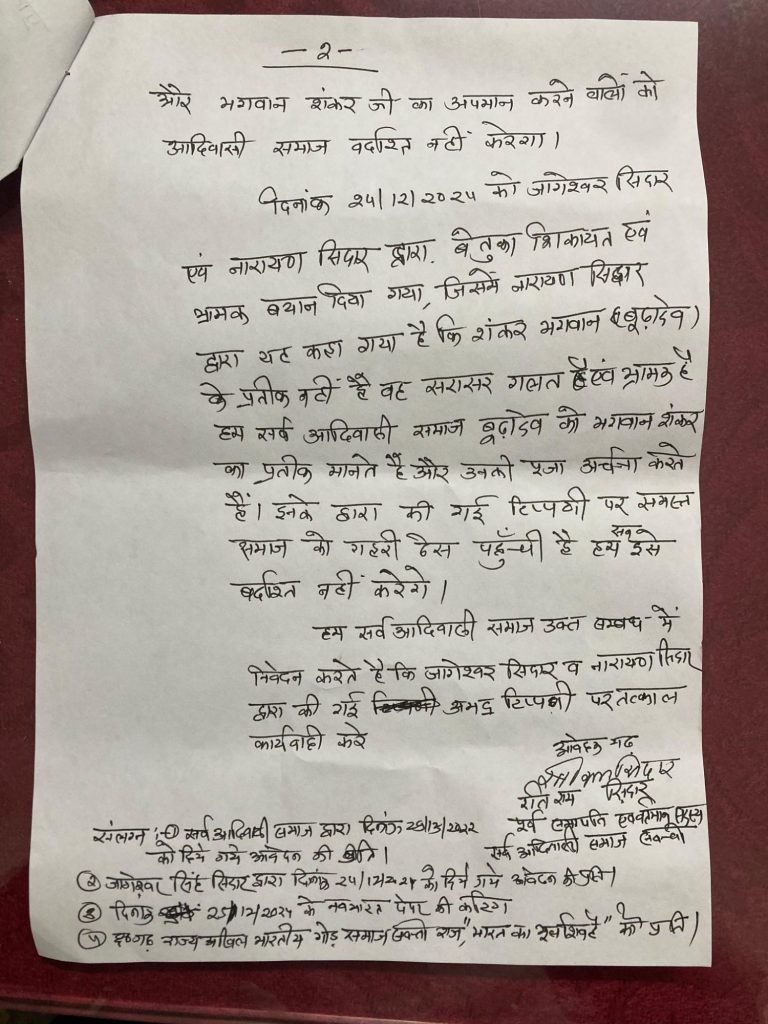 - २ -
और भगवान शंकर जी का अपमान करने वालों को
आदिवासी समाज बर्दाश्त नहीं करेगा।
दिनांक २४/१२/२०२४ को जागेश्वर सिदार
एवं नारायण सिदार द्वारा, बेतुका शिकायत एवं
भ्रामक बयान दिया गया, जिसमें नारायण सिदार
द्वारा यह कहा गया है कि शंकर भगवान (बूढ़ादेव)
के प्रतीक नहीं है वह सरासर गलत है एवं भ्रामक है
हम सर्व आदिवासी समाज बूढ़ादेव को भगवान शंकर
का प्रतीक मानते हैं और उनकी पूजा अर्चना करते
हैं। इनके द्वारा की गई टिप्पणी पर समस्त
समाज को गहरी ठेस पहुँची है हम सब इसे
बर्दाश्त नहीं करेगे।
हम सर्व आदिवासी समाज उक्त सम्बंध में
निवेदन करते है कि जागेश्वर सिदार व नारायण सिदार
द्वारा की गई अभद्र टिप्पणी पर तत्काल
कार्यवाही करे
आवेदक गण
सिदार
पूर्व सभापति एवं वर्तमान सदस्य
सर्व आदिवासी समाज सक्ती
संलग्न :- ① सर्व आदिवासी समाज द्वारा दिनांक
को दिये गये आवेदन की प्रति।
② जागेश्वर सिंह सिदार द्वारा दिनांक २४/१२/२४ को दिये गये आवेदन की प्रति।
③ दिनांक २५/१२/२०२४ के नवभारत पेपर की कटिंग
④ छ०गढ़ राज्य अखिल भारतीय गोंड समाज सक्ती राज, "भारत का शिव है" की प्रति।